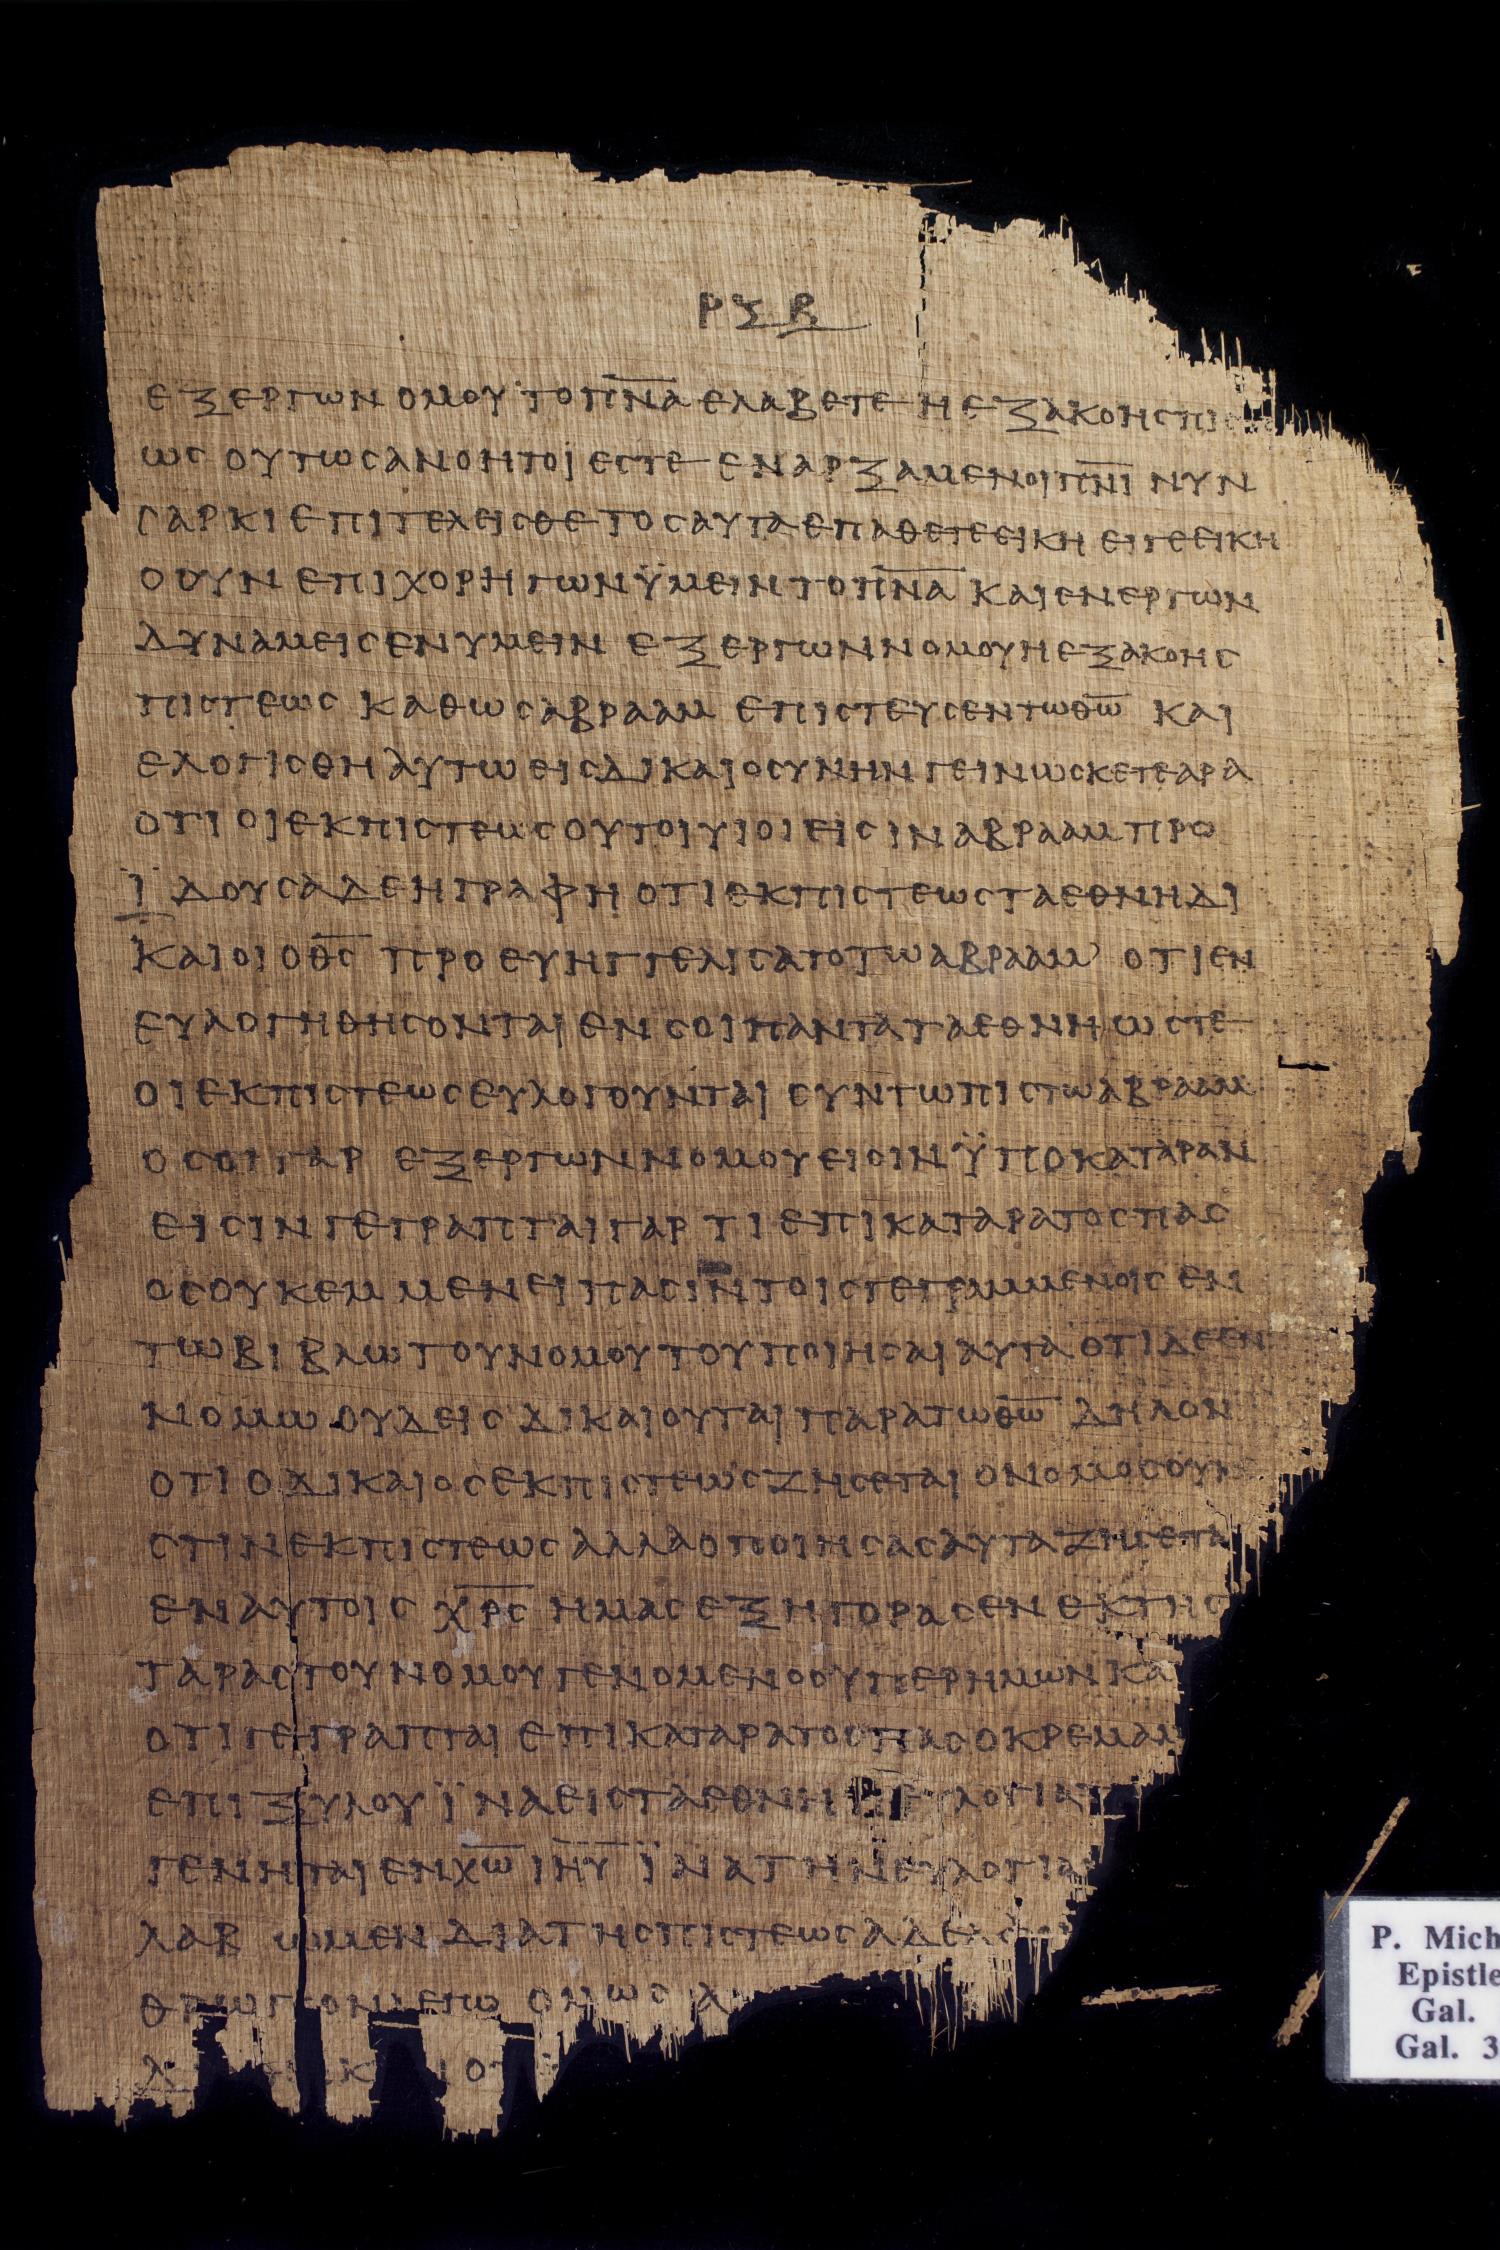 ΡΞΒ
ΕΞΕΡΓΩΝ ΟΜΟΥ ΤΟΠΝ̅Α̅ ΕΛΑΒΕΤΕ Η ΕΞΑΚΟΗΣΠΙΣ
ΩϹ ΟΥΤΩϹΑΝΟΗΤΟΙ ΕϹΤΕ ΕΝΑΡΞΑΜΕΝΟΙΠΝ̅Ι̅ ΝΥΝ
ϹΑΡΚΙ ΕΠΙΤΕΛΕΙϹΘΕ ΤΟϹΑΥΤΑ ΕΠΑΘΕΤΕΕΙΚΗ ΕΙΓΕΕΙΚΗ
Ο ΟΥΝ ΕΠΙΧΟΡΗΓΩΝ ΫΜΕΙΝ ΤΟΠΝ̅Α̅ ΚΑΙ ΕΝΕΡΓΩΝ
ΔΥΝΑΜΕΙϹ ΕΝ ΥΜΕΙΝ ΕΞΕΡΓΩΝΝΟΜΟΥΗΕΞΑΚΟΗϹ
ΠΙϹΤΕΩϹ ΚΑΘΩϹΑΒΡΑΑΜ ΕΠΙϹΤΕΥϹΕΝΤΩΘ̅Ω̅ ΚΑΙ
ΕΛΟΓΙϹΘΗ ΑΥΤΩ ΕΙϹΔΙΚΑΙΟϹΥΝΗΝ ΓΕΙΝΩϹΚΕΤΕΑΡΑ
ΟΤΙ ΟΙΕΚΠΙϹΤΕΩϹΟΥΤΟΙΥΙΟΙΕΙϹΙΝ ΑΒΡΑΑΜ ΠΡΟ
Ϊ ΔΟΥϹΑΔΕΗΓΡΑΦΗ ΟΤΙΕΚΠΙϹΤΕΩϹΤΑΕΘΝΗΔΙ
ΚΑΙΟΙ ΟΘ̅Ϲ̅ ΠΡΟΕΥΗΓΓΕΛΙϹΑΤΟΤΩΑΒΡΑΑΜ’ ΟΤΙΕΝ
ΕΥΛΟΓΗΘΗϹΟΝΤΑΙ ΕΝ ϹΟΙΠΑΝΤΑΤΑΕΘΝΗ ΩϹΤΕ
ΟΙΕΚΠΙϹΤΕΩϹΕΥΛΟΓΟΥΝΤΑΙ ϹΥΝΤΩΠΙϹΤΩΑΒΡΑΑΜ
ΟϹΟΙΓΑΡ ΕΞΕΡΓΩΝΝΟΜΟΥΕΙϹΙΝ ΫΠΟΚΑΤΑΡΑΝ
ΕΙϹΙΝ ΓΕΓΡΑΠΤΑΙΓΑΡ ΤΙ ΕΠΙΚΑΤΑΡΑΤΟϹΠΑϹ
ΟϹΟΥΚΕΜΜΕΝΕΙ ΠΑϹΙΝ ΤΟΙϹΓΕΓΡΑΜΜΕΝΟΙϹ ΕΝ
ΤΩΒΙΒΛΩ ΤΟΥΝΟΜΟΥΤΟΥΠΟΙΗϹΑΙ ΑΥΤΑ ΟΤΙΔΕΕΝ
ΝΟΜΩ ΟΥΔΕΙϹ ΔΙΚΑΙΟΥΤΑΙ ΠΑΡΑΤΩΘ̅Ω̅ ΔΗΛΟΝ
ΟΤΙ Ο ΔΙΚΑΙΟϹΕΚΠΙϹΤΕΩϹΖΗϹΕΤΑΙ ΟΝΟΜΟϹΟΥΚ
ϹΤΙΝΕΚΠΙϹΤΕΩϹΑΛΛΑΟΠΟΙΗϹΑϹΑΥΤΑΖΗϹΕΤΑ
ΕΝΑΥΤΟΙϹ ΧΡ̅Ϲ̅ ΗΜΑϹΕΞΗΓΟΡΑϹΕΝ ΕΚΤΗϹ
ΤΑΡΑϹΤΟΥΝΟΜΟΥΓΕΝΟΜΕΝΟϹΥΠΕΡΗΜΩΝΚΑ
ΟΤΙΓΕΓΡΑΠΤΑΙ ΕΠΙΚΑΤΑΡΑΤΟϹΠΑϹΟΚΡΕΜΑΜ
ΕΠΙΞΥΛΟΥ ΪΝΑΕΙϹΤΑΕΘΝΗ ΕΥΛΟΓΙΑΤ
ΓΕΝΗΤΑΙΕΝΧ̅Ω̅ Ι̅Η̅Υ̅ ΪΝΑΤΗΝΕΥΛΟΓΙΑ
ΛΑΒ ΩΜΕΝ ΔΙΑΤΗϹΠΙϹΤΕΩϹ ΑΔΕΛΦ
ΛΕΓΩ ΟΜΩϹ Α